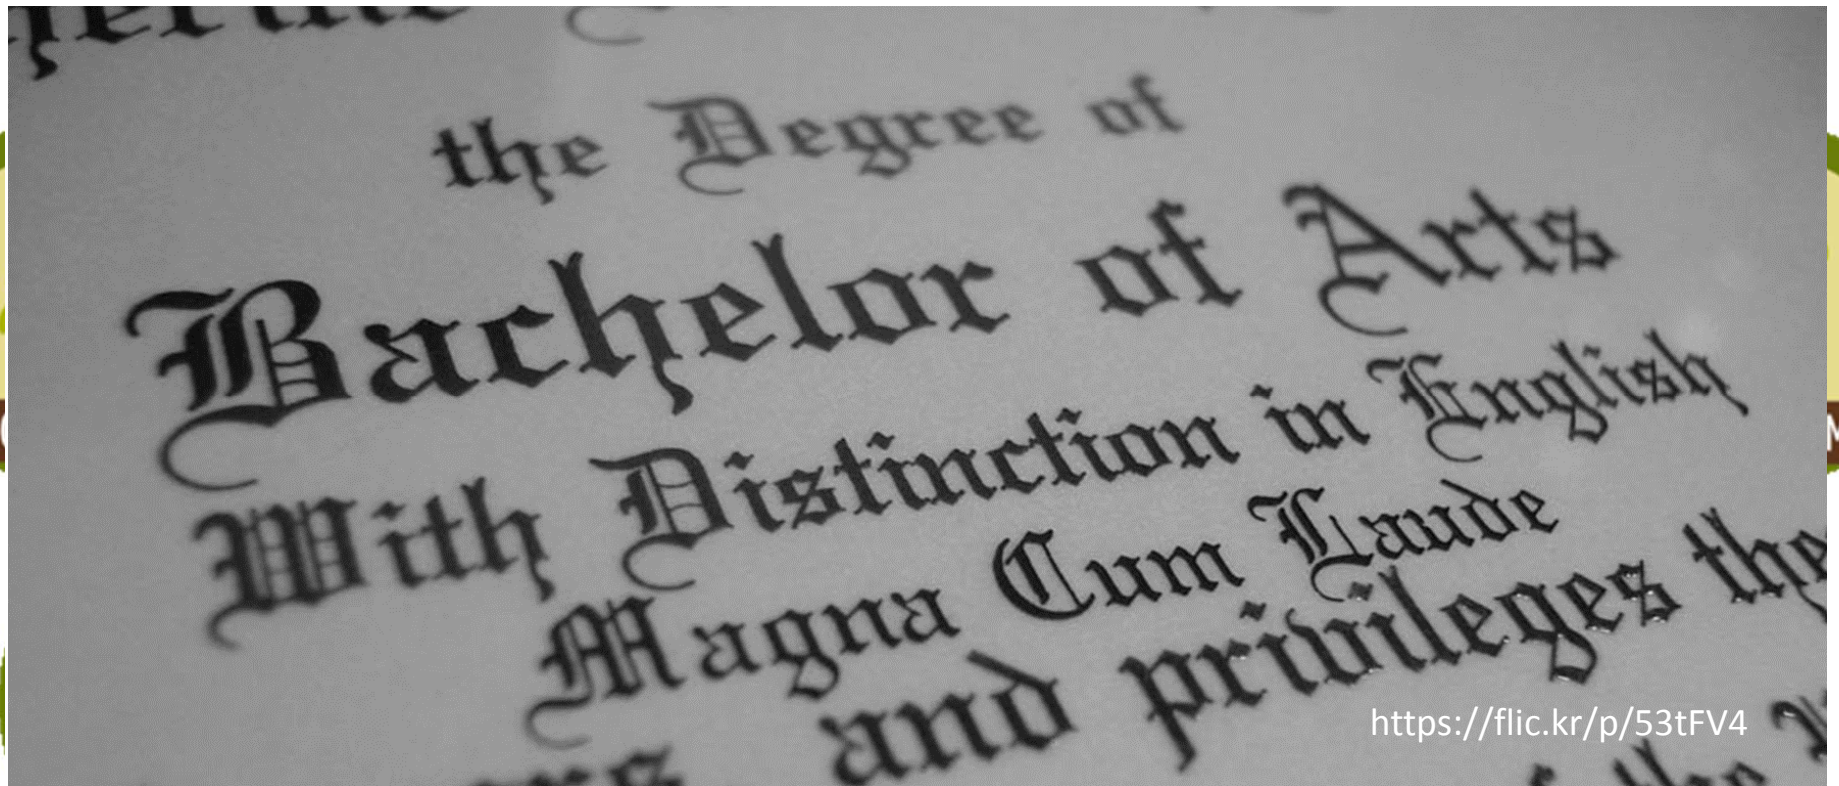 the Degree of
Bachelor of Arts
With Distinction in English
Magna Cum Laude
and privileges
https://flic.kr/p/53tFV4